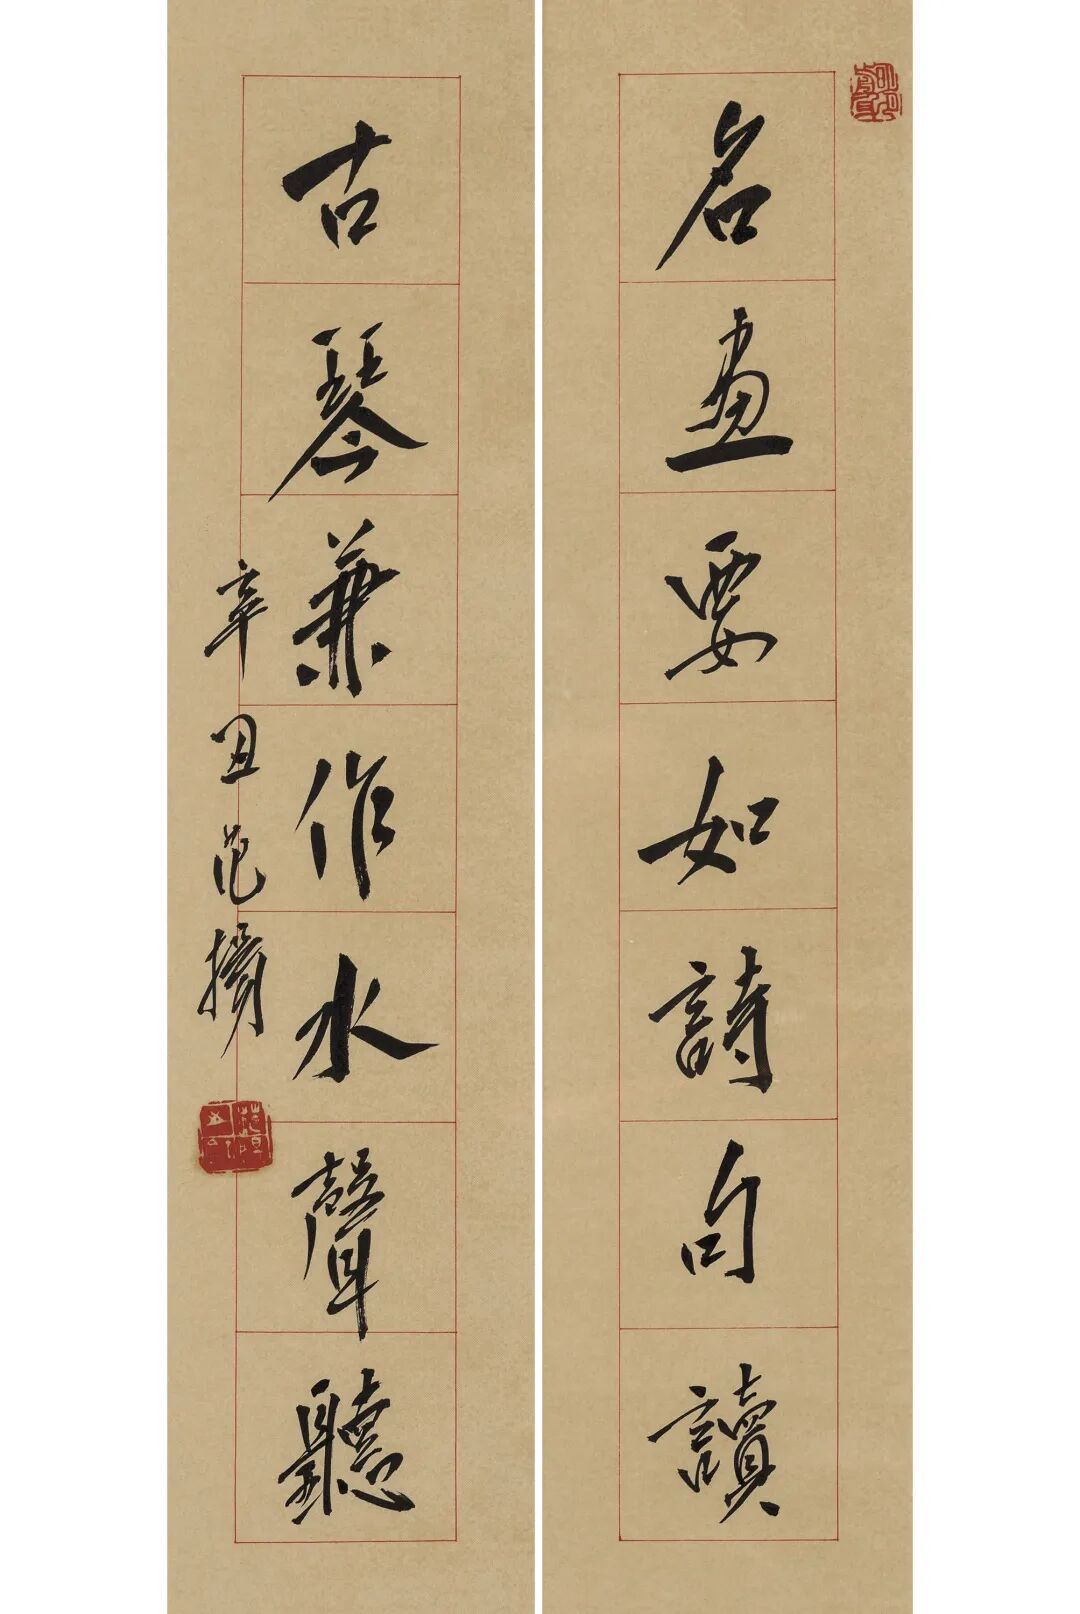 名畫要如詩句讀
古琴兼作水聲聽
辛丑范